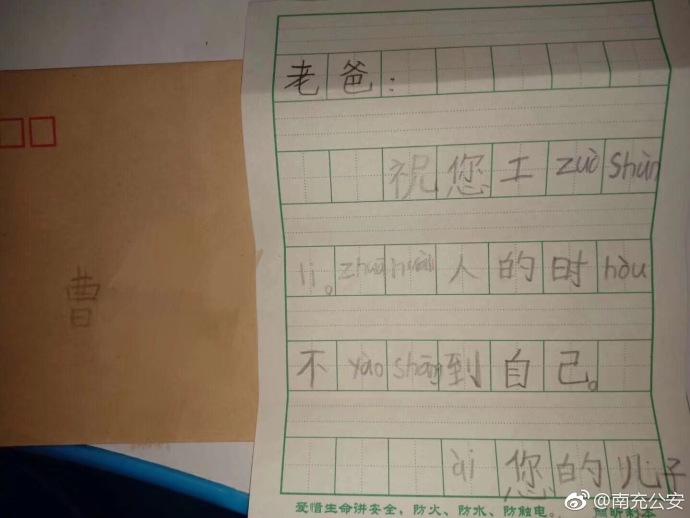 曹
老爸：
祝您工zuò shùn
lì。zhuā huài人的时hòu
不yào shāng到自己。
ài您的儿子
爱惜生命讲安全，防火、防水、防触电。
@南充公安